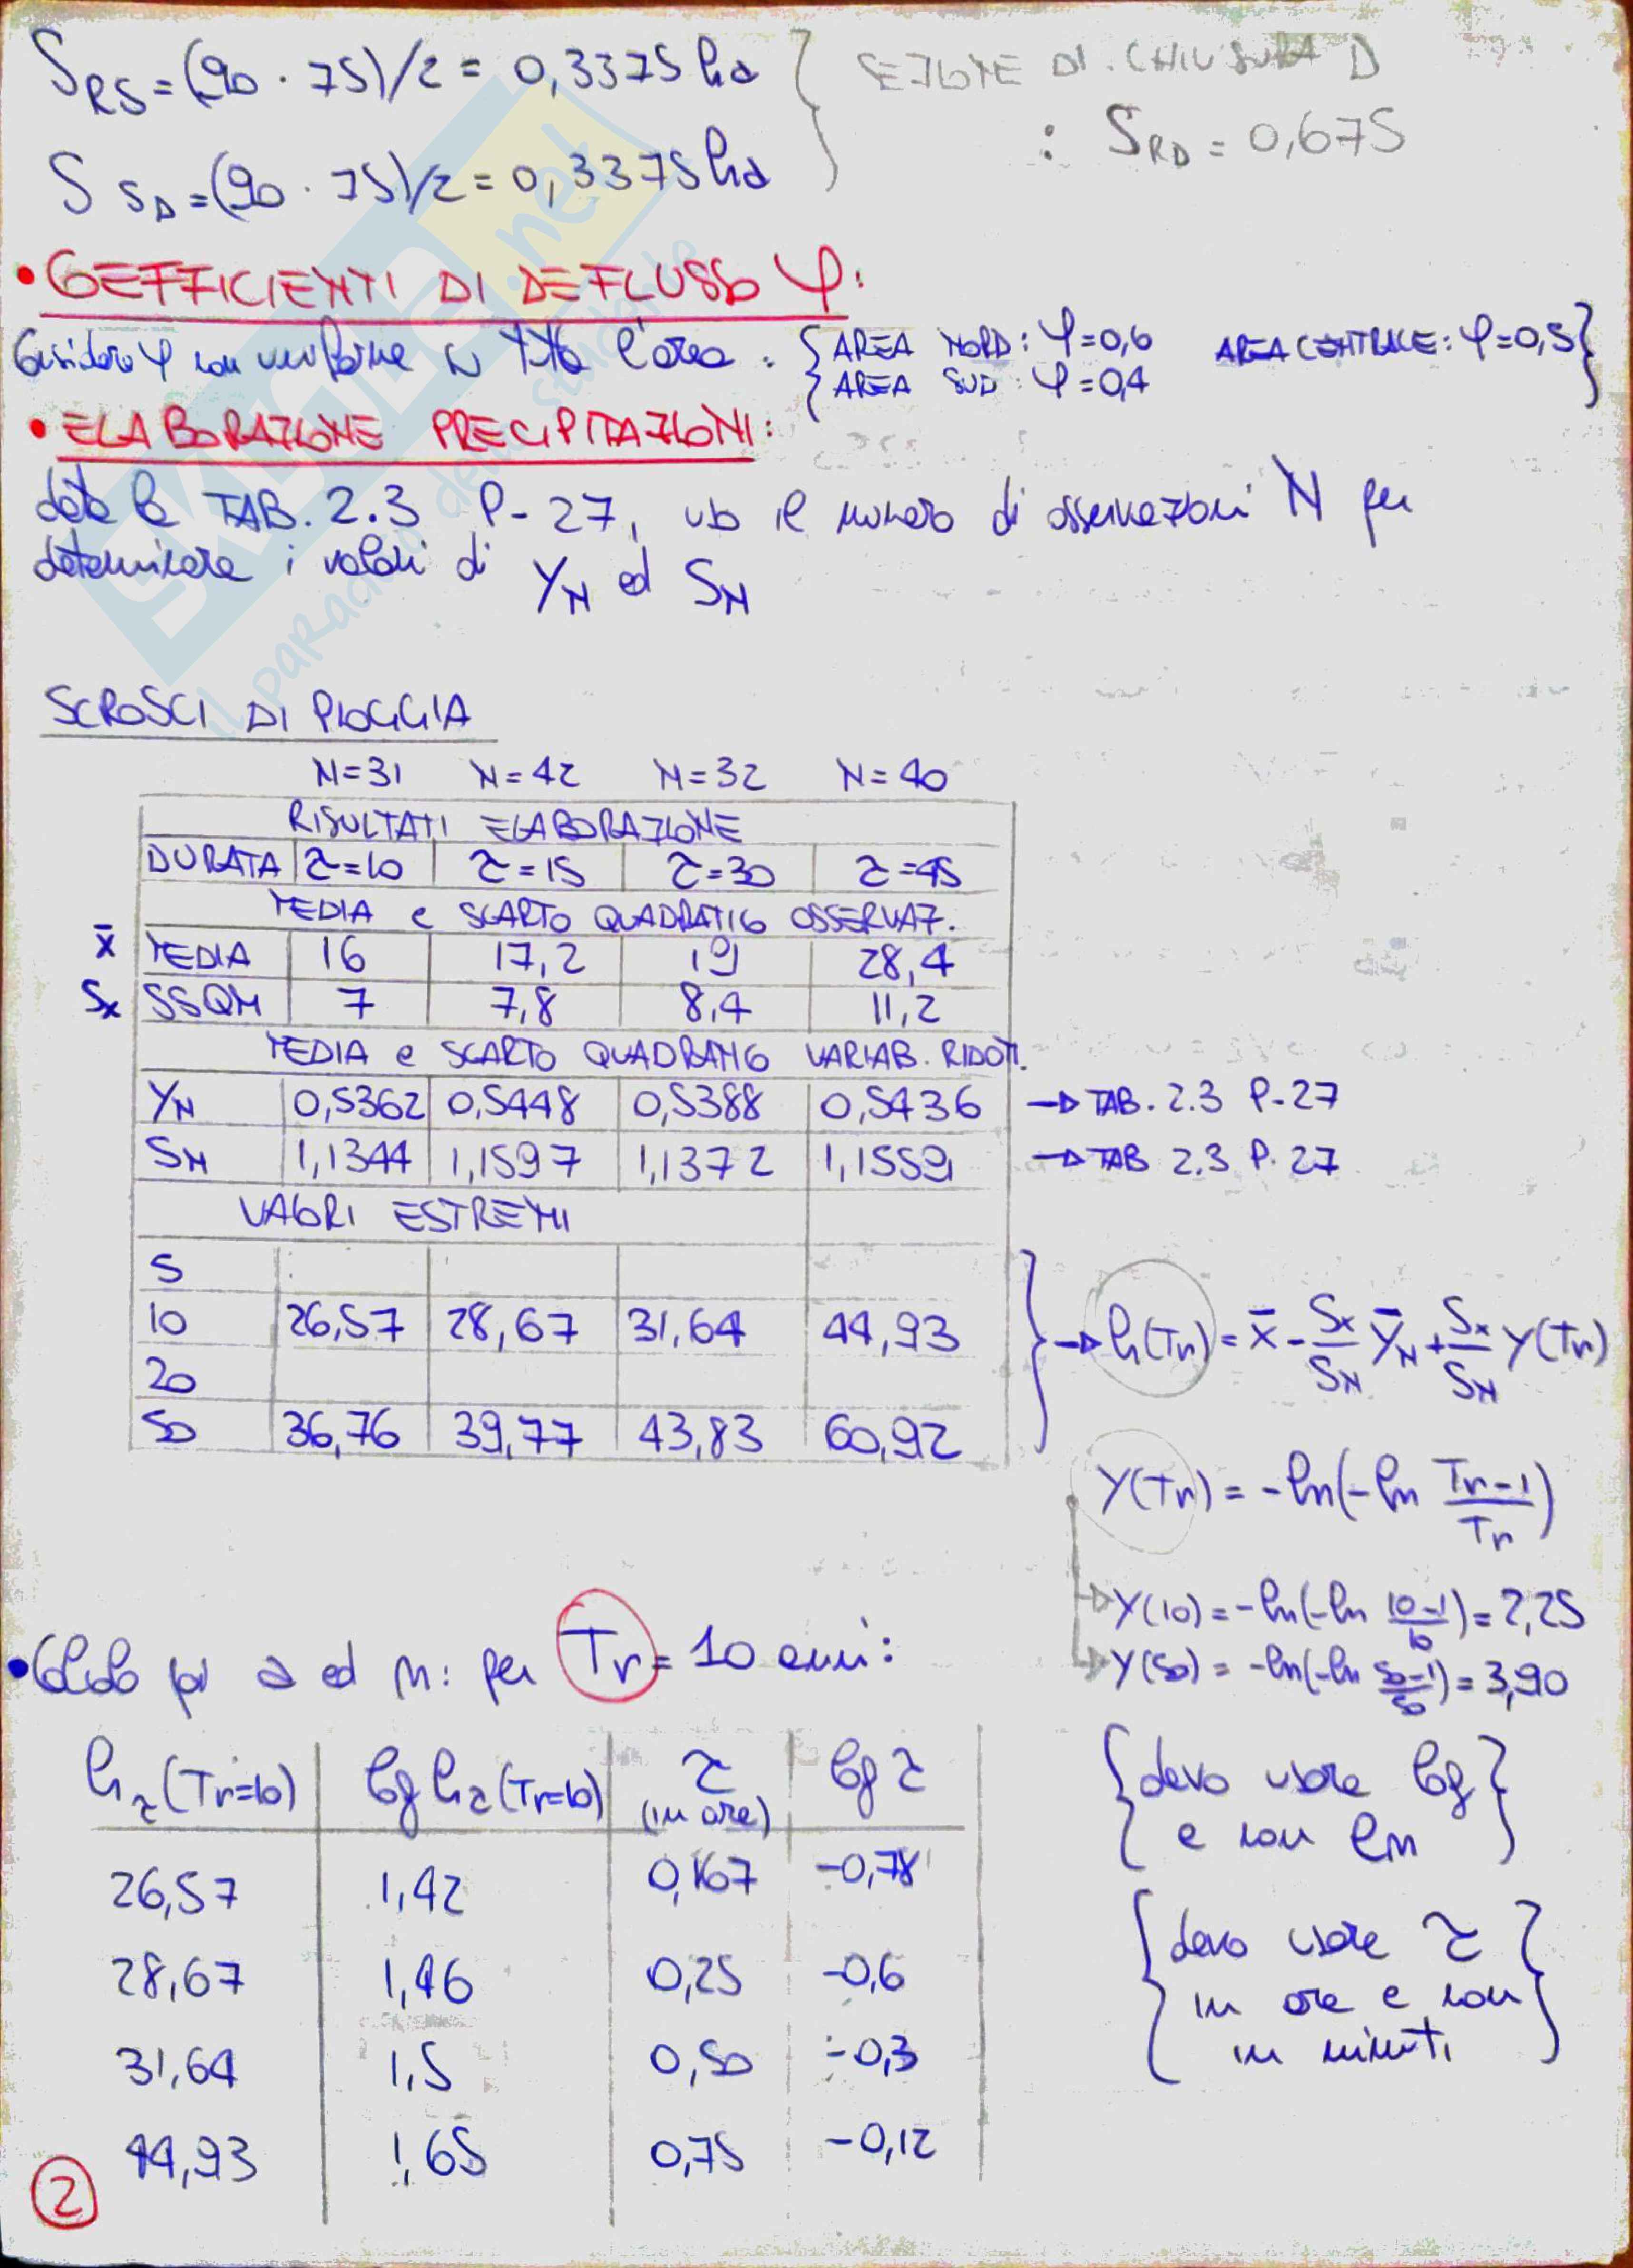 S_RS = (90 · 75)/2 = 0,3375 ha } SEZIONE DI CHIUSURA D
S_SD = (90 · 75)/2 = 0,3375 ha : S_RD = 0,675
• COEFFICIENTI DI DEFLUSSO φ:
Considero φ non uniforme su tutta l'area : { AREA NORD: φ=0,6 AREA CENTRALE: φ=0,5 }
AREA SUD: φ=0,4
• ELABORAZIONE PRECIPITAZIONI:
data la TAB. 2.3 P-27, uso il numero di osservazioni N per
determinare i valori di Y_N ed S_N
SCROSCI DI PIOGGIA
N=31 N=42 N=32 N=40
RISULTATI ELABORAZIONE
DURATA τ=10 τ=15 τ=30 τ=45
MEDIA e SCARTO QUADRATICO OSSERVAZ.
x̄ MEDIA 16 17,2 19 28,4
Sx SSQM 7 7,8 8,4 11,2
MEDIA e SCARTO QUADRATICO VARIAB. RIDOTT.
Y_N 0,5362 0,5448 0,5388 0,5436 → TAB. 2.3 P-27
S_N 1,1344 1,1597 1,1372 1,1559 → TAB 2.3 P. 27
VALORI ESTREMI
5
10 26,57 28,67 31,64 44,93 } → h(Tr) = x̄ - Sx/S_N Ȳ_N + Sx/S_N Y(Tr)
20
50 36,76 39,77 43,83 60,92
Y(Tr) = -ln(-ln (Tr-1)/Tr)
→ Y(10) = -ln(-ln (10-1)/10) = 2,25
→ Y(50) = -ln(-ln (50-1)/50) = 3,90
• Calcolo poi a ed n: per Tr = 10 anni:
h_τ(Tr=10) log h_τ(Tr=10) τ (in ore) log τ
26,57 1,42 0,167 -0,78
28,67 1,46 0,25 -0,6
31,64 1,5 0,50 -0,3
44,93 1,65 0,75 -0,12
{ devo usare log }
e non ln
{ devo usare τ }
in ore e non
in minuti
2
SKUOLA.net
il paradiso dello studente